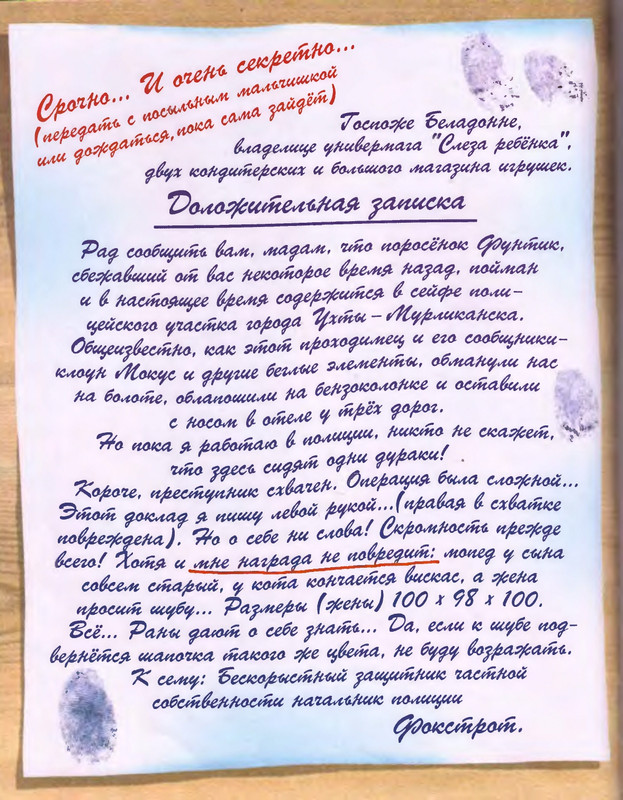 Срочно... И очень секретно...
(передать с посыльным мальчишкой
или дождаться, пока сама зайдёт)
Госпоже Беладонне,
владелице универмага "Слеза ребёнка",
двух кондитерских и большого магазина игрушек.
Доложительная записка
Рад сообщить вам, мадам, что поросёнок Фунтик,
сбежавший от вас некоторое время назад, пойман
и в настоящее время содержится в сейфе поли-
цейского участка города Ухты – Мурликанска.
Общеизвестно, как этот проходимец и его сообщники–
клоун Мокус и другие беглые элементы, обманули нас
на болоте, облапошили на бензоколонке и оставили
с носом в отеле у трёх дорог.
Но пока я работаю в полиции, никто не скажет,
что здесь сидят одни дураки!
Короче, преступник схвачен. Операция была сложной...
Этот доклад я пишу левой рукой...(правая в схватке
повреждена). Но о себе ни слова! Скромность прежде
всего! Хотя и мне награда не повредит: мопед у сына
совсем старый, у кота кончается вискас, а жена
просит шубу... Размеры (жены) 100 х 98 х 100.
Всё... Раны дают о себе знать... Да, если к шубе под-
вернётся шапочка такого же цвета, не буду возражать.
К сему: Бескорыстный защитник частной
собственности начальник полиции
Фокстрот.